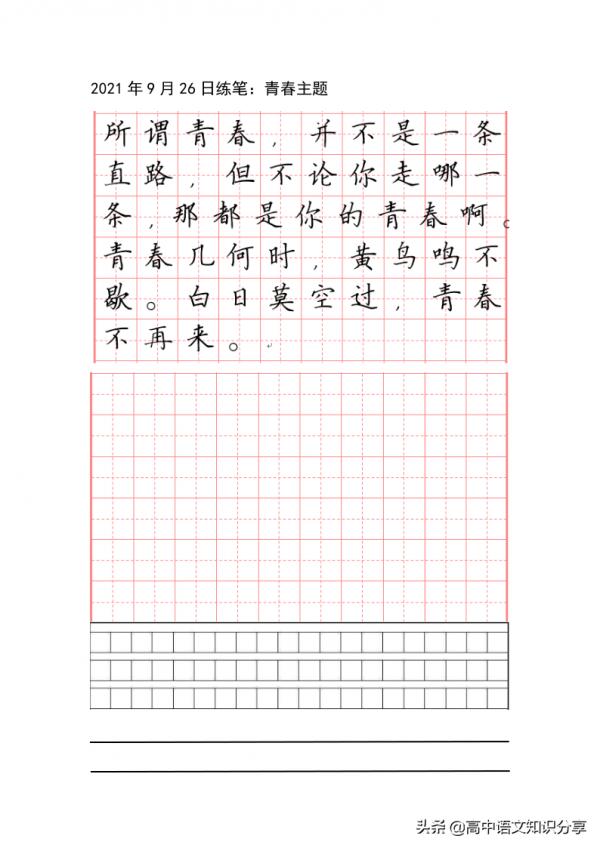 2021年9月26日练笔：青春主题
所谓青春，并不是一条
直路，但不论你走哪一
条，那都是你的青春啊。
青春几何时，黄鸟鸣不
歇。白日莫空过，青春
不再来。
头条 @高中语文知识分享